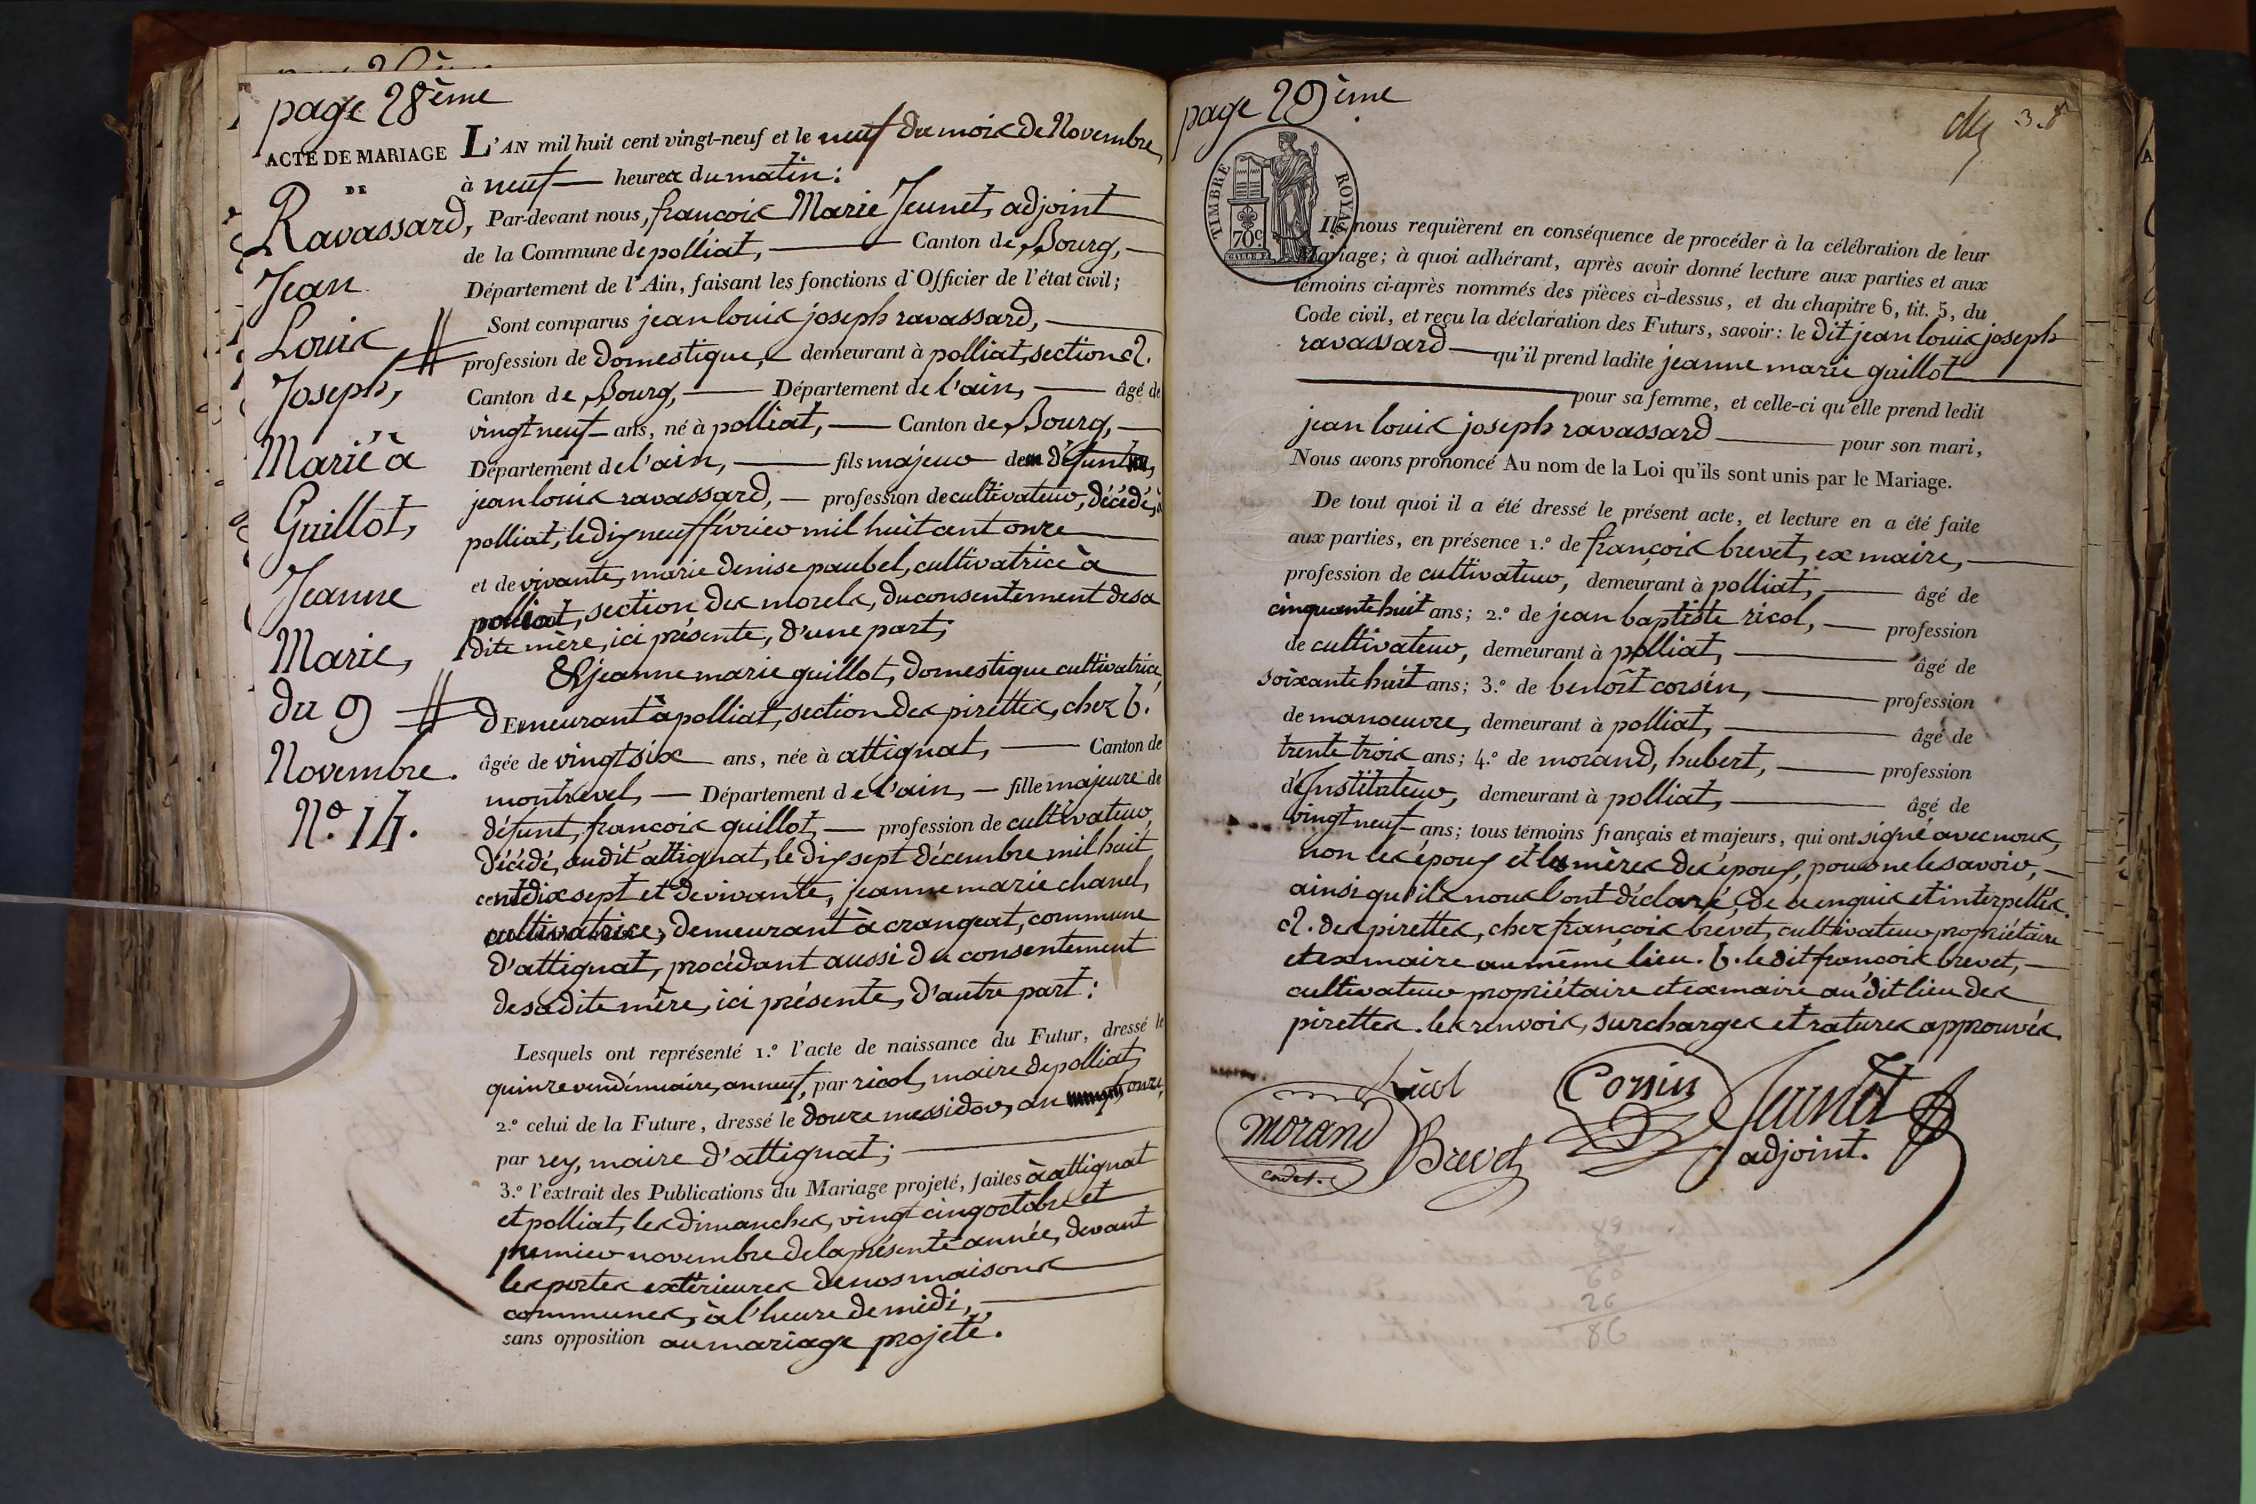 page 28ème
ACTE DE MARIAGE
DE
Ravassard,
Jean
Louis
Joseph,
Marié à
Guillot,
Jeanne
Marie,
du 9
Novembre.
N.º 14.
L'AN mil huit cent vingt-neuf et le neuf du mois de Novembre,
à neuf heures du matin:
Par-devant nous, françois Marie Jeunet, adjoint
de la Commune de polliat, Canton de Bourg,
Département de l'Ain, faisant les fonctions d'Officier de l'état civil;
Sont comparus jean louis joseph ravassard,
profession de domestique, demeurant à polliat, section a.
Canton de Bourg, Département de l'ain, âgé de
vingt neuf ans, né à polliat, Canton de Bourg,
Département de l'ain, fils majeur de défunt
jean louis ravassard, profession de cultivateur, décédé, à
polliat, le dix neuf février mil huit cent onze
et de vivante, marie denise paubel, cultivatrice à
polliat, section des morels, du consentement de sa
dite mère, ici présente, d'une part;
Et jeanne marie guillot, domestique cultivatrice,
demeurant à polliat, section des pirettes, chez b.
âgée de vingt six ans, née à attignat, Canton de
montrevel, Département de l'ain, fille majeure de
défunt, françois guillot, profession de cultivateur,
décédé, audit attignat, le dix sept décembre mil huit
cent dix sept et de vivante, jeanne marie chanel,
cultivatrice, demeurant à cranguat, commune
d'attignat, procédant aussi du consentement
de sa dite mère, ici présente, d'autre part:
Lesquels ont représenté 1.º l'acte de naissance du Futur, dressé le
quinze vendémiaire, an neuf, par ricol, maire de polliat,
2.º celui de la Future, dressé le douze messidor, an onze,
par rey, maire d'attignat;
3.º l'extrait des Publications du Mariage projeté, faites à attignat
et polliat, les dimanches, vingt cinq octobre et
premier novembre de la présente année, devant
les portes extérieures de nos maisons
communes, à l'heure de midi,
sans opposition au mariage projeté.
page 29ème
3.8
TIMBRE ROYAL
70c
Ils nous requièrent en conséquence de procéder à la célébration de leur
Mariage; à quoi adhérant, après avoir donné lecture aux parties et aux
témoins ci-après nommés des pièces ci-dessus, et du chapitre 6, tit. 5, du
Code civil, et reçu la déclaration des Futurs, savoir: le dit jean louis joseph
ravassard qu'il prend ladite jeanne marie guillot
pour sa femme, et celle-ci qu'elle prend ledit
jean louis joseph ravassard pour son mari,
Nous avons prononcé Au nom de la Loi qu'ils sont unis par le Mariage.
De tout quoi il a été dressé le présent acte, et lecture en a été faite
aux parties, en présence 1.º de françois brevet, ex maire,
profession de cultivateur, demeurant à polliat, âgé de
cinquante huit ans; 2.º de jean baptiste ricol, profession
de cultivateur, demeurant à polliat, âgé de
soixante huit ans; 3.º de benoît corsin, profession
de manoeuvre, demeurant à polliat, âgé de
trente trois ans; 4.º de morand, hubert, profession
d'Instituteur, demeurant à polliat, âgé de
vingt neuf ans; tous témoins français et majeurs, qui ont signé avec nous,
non les époux et les mères des époux, pour ne le savoir,
ainsi qu'ils nous l'ont déclaré, de ce enquis et interpellés.
a. des pirettes, chez françois brevet, cultivateur propriétaire
et ex maire au même lieu. b. le dit françois brevet,
cultivateur propriétaire et ex maire au dit lieu des
pirettes. les renvois, surcharges et ratures approuvés.
Ricol
Corsin
Jeunet
adjoint.
morand
Brevet
26
86